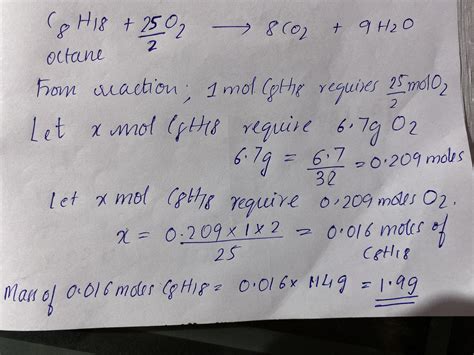 C8H18 + 25/2 O2 ⟶ 8CO2 + 9H2O
octane
From reaction; 1 mol C8H18 requires 25/2 mol O2
Let x mol C8H18 require 6.7g O2
6.7g = 6.7/32 = 0.209 moles
Let x mol C8H18 require 0.209 moles O2.
x = 0.209×1×2/25 = 0.016 moles of
C8H18
Mass of 0.016 moles C8H18 = 0.016× 114g = 1.9g